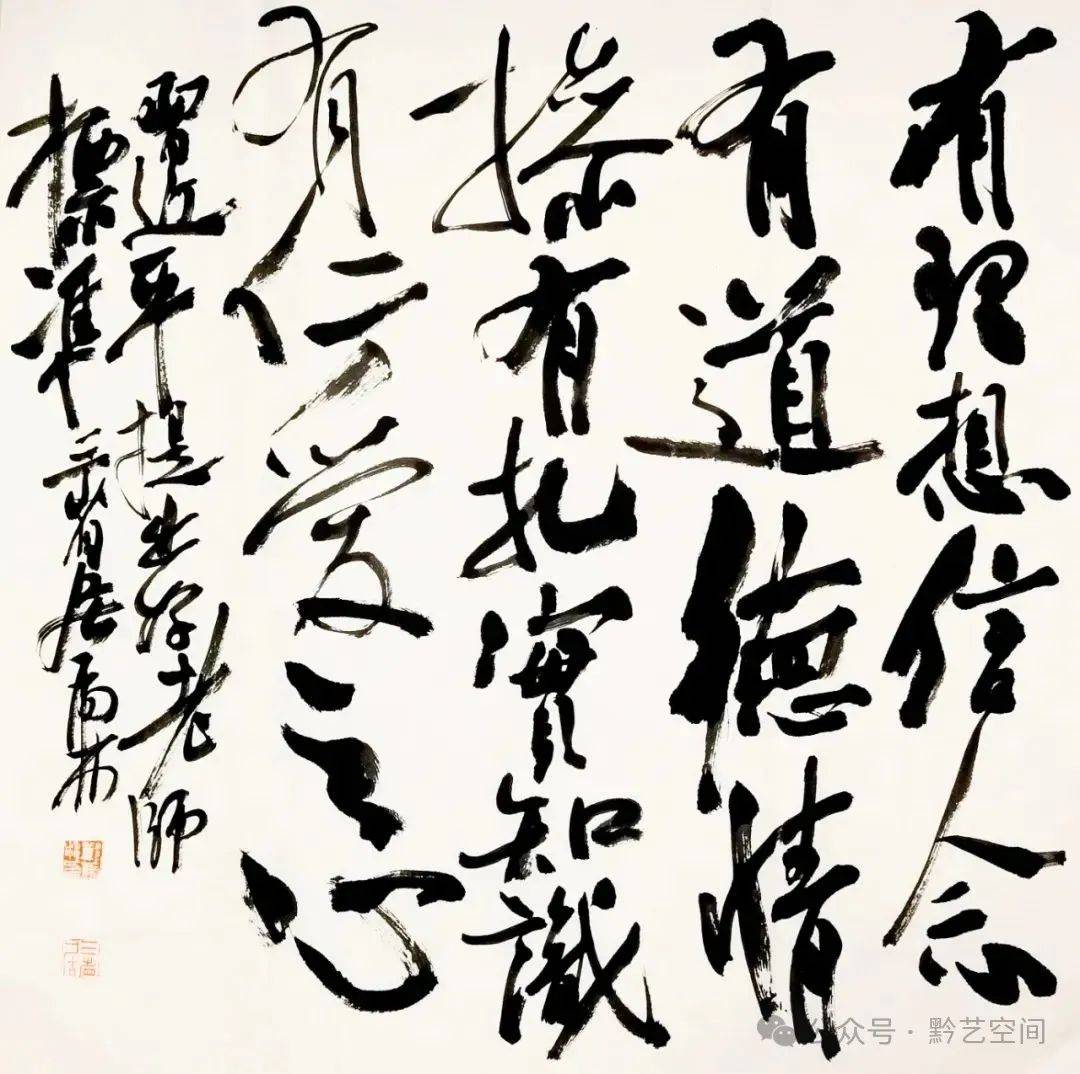 有理想信念
有道德情
操有扎實知識
有仁愛之心
習近平提出好老師
標準
公众号·黔艺空间